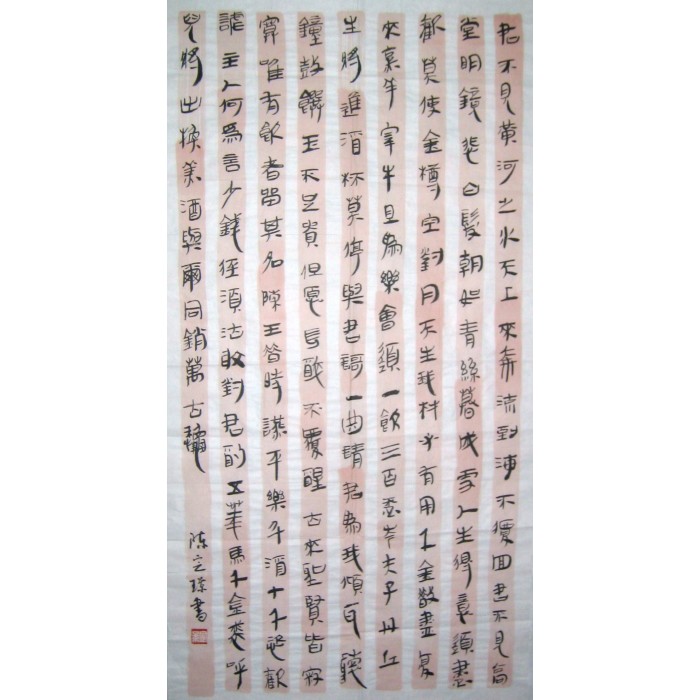 君不見黃河之水天上來奔流到海不復回君不見高
堂明鏡悲白髮朝如青絲暮成雪人生得意須盡
歡莫使金樽空對月天生我材必有用千金散盡復
來烹羊宰牛且為樂會須一飲三百盃岑夫子丹丘
生將進酒杯莫停與君謌一曲請君為我傾耳聽
鐘鼓饌玉不足貴但愿長醉不覆醒古來聖賢皆寂
寞唯有飲者留其名陳王昔時讌平樂斗酒十千恣歡
謔主人何為言少錢徑須沽取對君酌五華馬千金裘呼
兒將出換美酒與爾同銷萬古愁
陈書